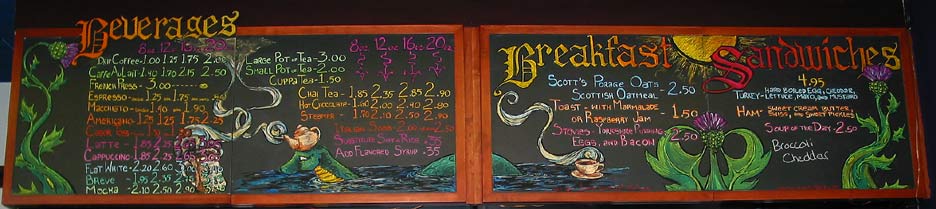 Beverages
8oz 12oz 16oz 20oz
Drip Coffee - 1.00 1.25 1.75 2.00
Caffe Au Lait - 1.40 1.70 2.15 2.50
French Press - 3.00
Espresso - 1.25 1.75
Macchiato
Americano - 1.25 1.25 1.75 2.25
Latte - 1.85 2.25
Cappuccino - 1.85 2.25
Flat White - 2.20 2.60
Breve - 1.95 2.35
Mocha - 2.10 2.50 2.90
8oz 12oz 16oz 20oz
Large Pot of Tea - 3.00
Small Pot of Tea - 2.00
Cuppa Tea - 1.50
Chai Tea - 1.85 2.35 2.85 2.90
Hot Chocolate - 1.60 2.00 2.40 2.80
Steamer - 1.70 2.10 2.50 2.90
Italian Soda - 2.00 2.50
Substitute Soy or Rice .35
Add Flavored Syrup .35
Breakfast
Scott's Porage Oats
Scottish Oatmeal - 2.50
Toast - with Marmalade
or Raspberry Jam - 1.50
Stovies - Yorkshire Pudding
Eggs, and Bacon - 2.50
Sandwiches
4.95
Turkey - Hard Boiled Egg, Cheddar,
Lettuce, Mayo, and Mustard
Ham - Sweet Cream Butter,
Swiss, and Sweet Pickles
Soup of the Day - 2.50
Broccoli
Cheddar